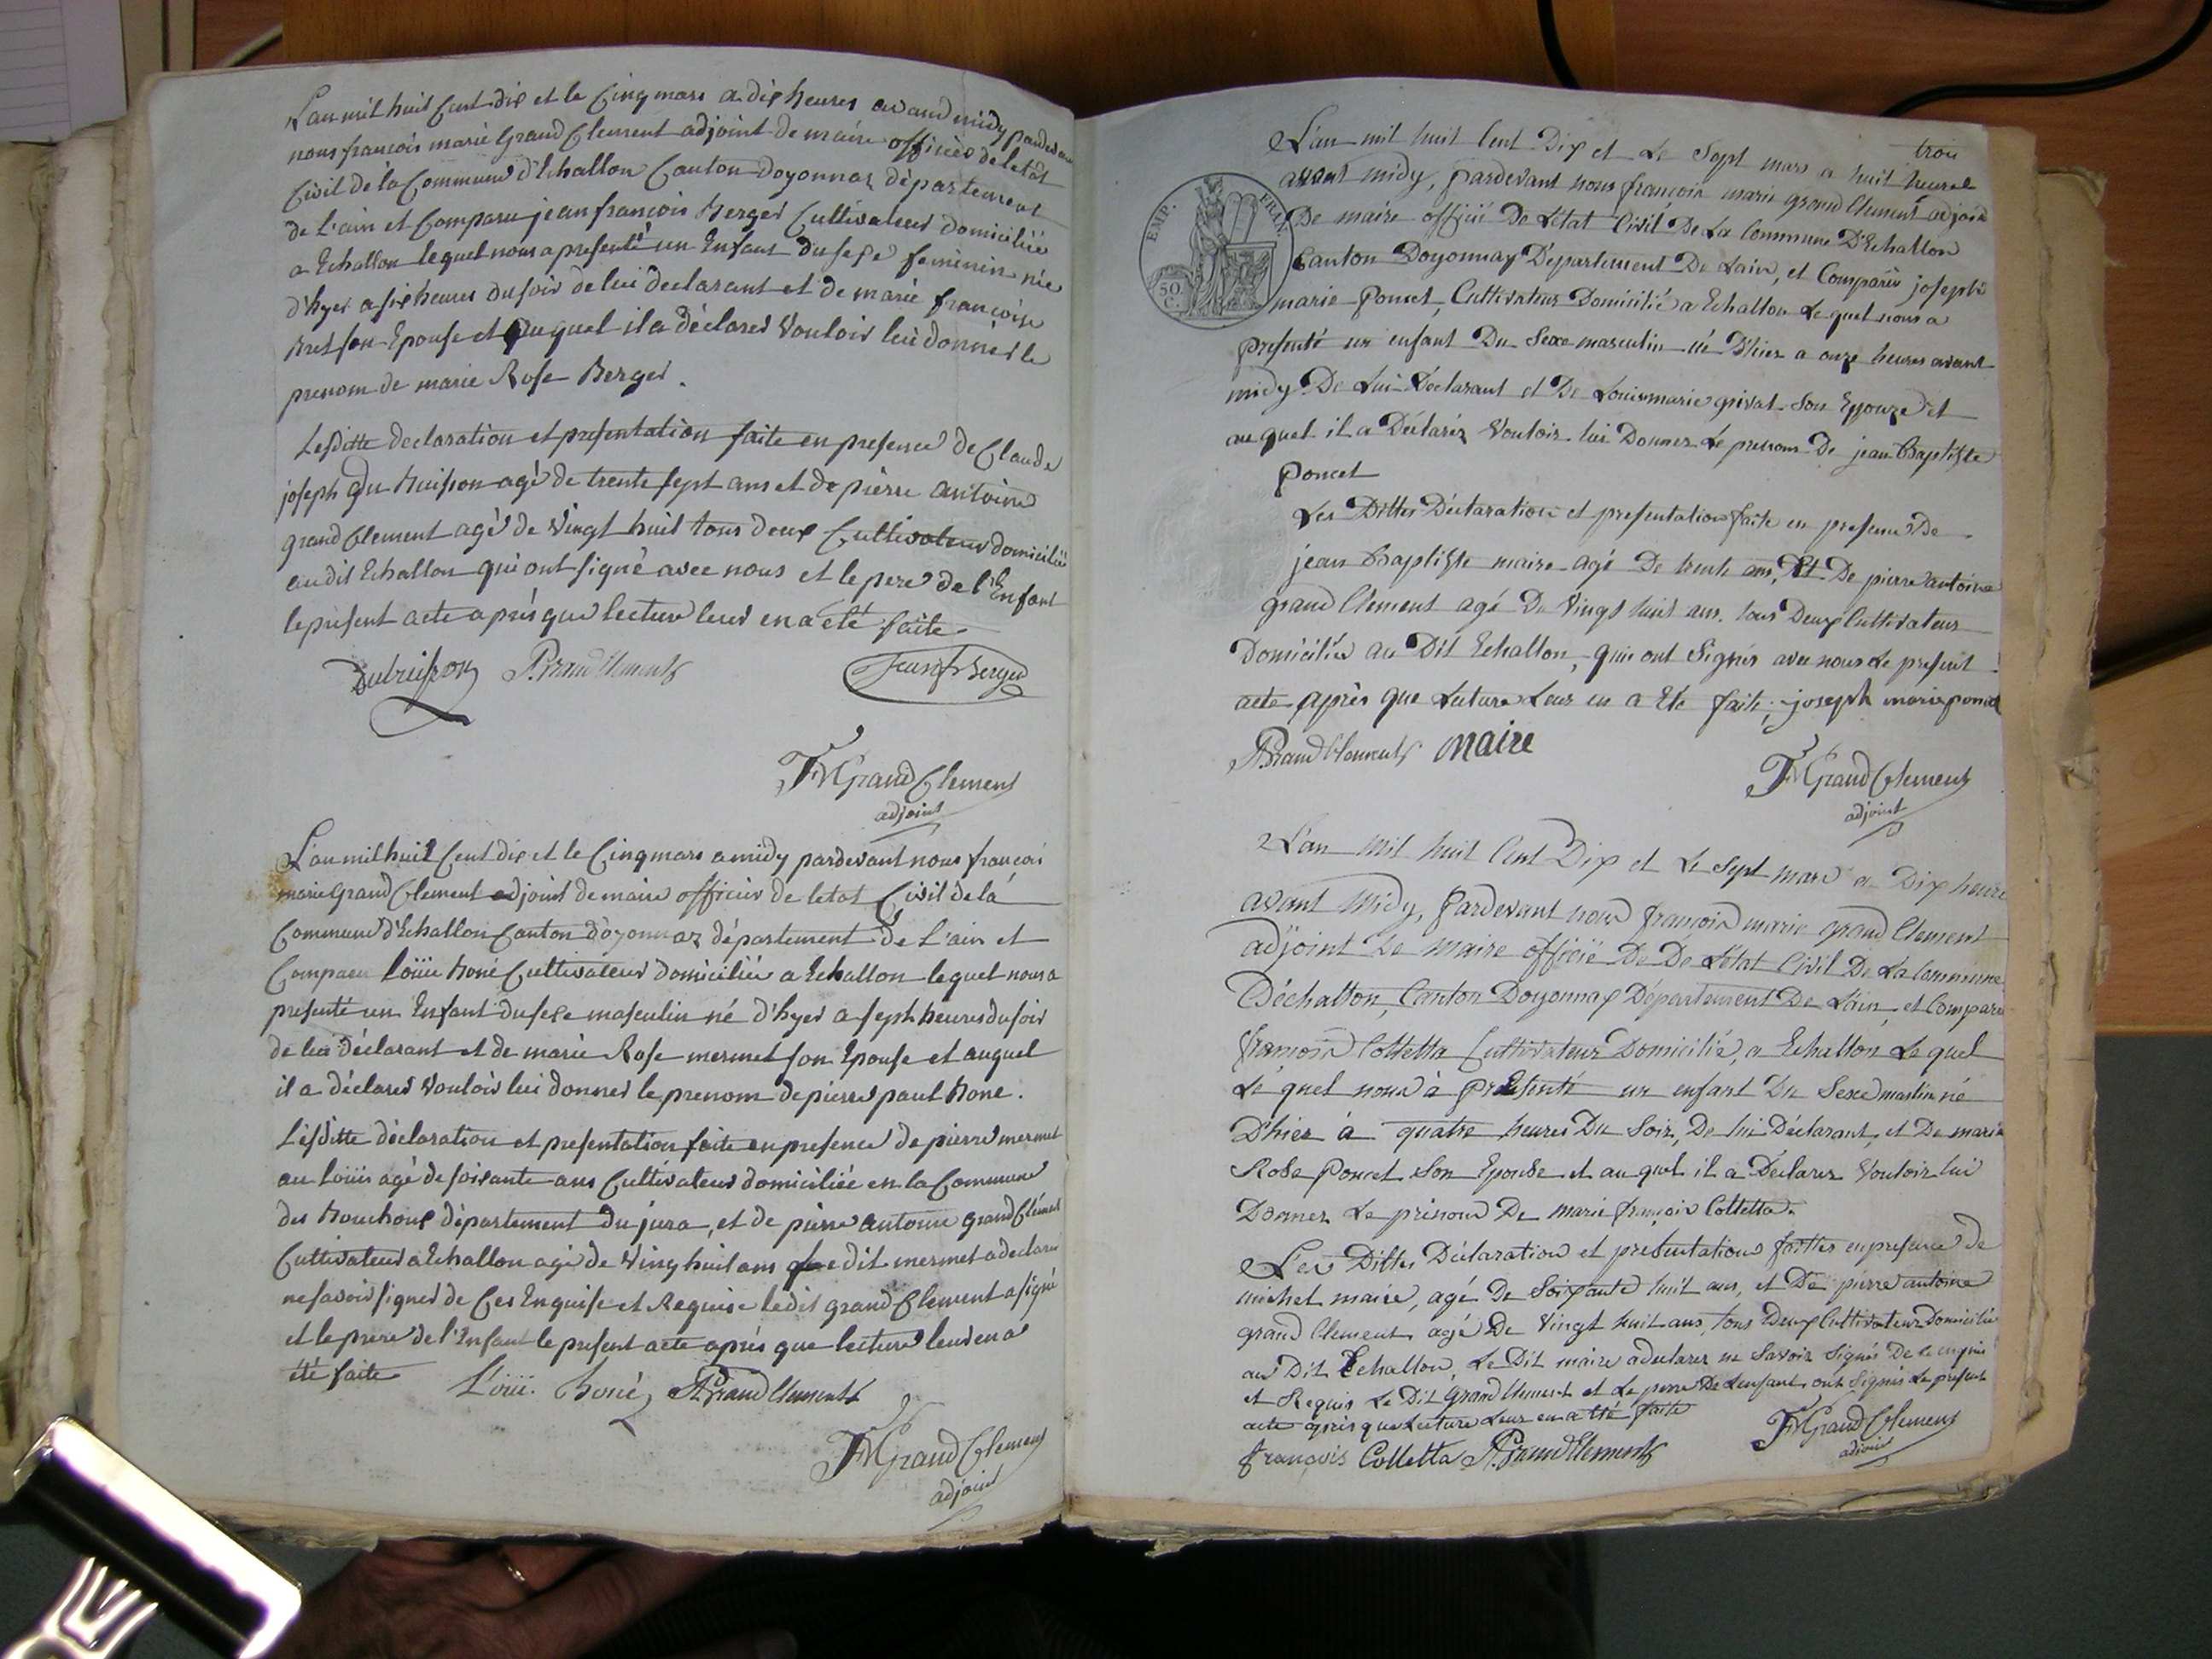 L'an mil huit Cent dix et le Cinq mars a dix heures avand midy pardevan
nous françois marie Grand Clement adjoint de maire officier de letat
Civil de la Commune d'Echallon Canton doyonnaz département
de l'ain et Comparu jean françois Berger Cultivateur domiciliée
a Echallon lequel nous a presenté un Enfant du sexe feminin née
d'hyer a six heures du soir de lui declarant et de marie françoise
son Epouse et auquel il a déclarer Vouloir lui donner le
prenom de marie Rose Berger.
Lesditte declaration et presentation faite en presence de Claude
joseph du Buisson agé de trente sept ans et de pierre antoine
grand Clement agé de Vingt huit tous deux Cultivateur domiciliée
au dit Echallon qui ont signé avec nous et le pere de l'Enfant
le present acte aprés que lecture leur en a eté faite.
Dubuisson PA Grand Clement Jean f Berger
FM Grand Clement
adjoint
L'an mil huit Cent dix et le Cinq mars a midy pardevant nous françois
marie Grand Clement adjoint de maire officier de letat Civil de la
Commune d'Echallon Canton d'oyonnaz département de L'ain et
Comparu Loüis Boné Cultivateur domiciliée a Echallon lequel nous a
presenté un Enfant du sexe masculin né d'hyer a sept heures du soir
de lui déclarant et de marie Rose mermet son Epouse et auquel
il a déclarer Vouloir lui donner le prenom de pierre paul Bone.
Lesditte déclaration et presentation faite en presence de pierre mermet
au Loüis agé de soixante ans Cultivateur domiciliée en la Commune
des Bouchoux département du jura, et de pierre antoine grand Clément
Cultivateur a Echallon agé de Ving huit ans dit mermet a declarer
ne savoir signer de Ces Enquise et Requise ledit grand Clement a signé
et le prere de l'Enfant le present acte aprés que lecture leur en a
été faite
Loüi. Boné PA Grand Clement
FM Grand Clement
adjoint
trois
L'an mil huit Cent Dix et Le Sept mars a huit heures
avant midy, pardevant nous françois marie grand Clement adjoin
De maire officié De L'état Civil De La Commune D'Echallon
Canton Doyonnax Département De Lain, et Comparu joseph
EMP. FRAN.
50 C.
marie Poncet, Cultivateur Domicilié a Echallon Le quel nous a
presenté un enfant Du Sexe masculin né D'hier a onze heures avant
midy De Lui Déclarant et De Louise marie grivat Son Epouze et
au quel il a Déclarez Vouloir lui Donner Le prenom De jean Baptiste
Poncet
Les Dittes Déclaration et presentation faite en presence De
jean Baptiste maire agé De trente ans, Et De pierre antoine
grand Clement agé De Vingt huit ans. tous Deux Cultivateur
Domiciliés au Dit Echallon, qui ont Signés avec nous Le present
acte après que Lecture Leur en a Eté faite; joseph marie poncet
PA Grand Clement Maire
FM Grand Clement
adjoint
L'an mil huit Cent Dix et Le Sept mars a Dix heure
avant Midy, Pardevant nous françois marie grand Clement
adjoint de Maire officié De De L'état Civil De La Commune
Déchallon, Canton Doyonnax Département De Lain, et Comparu
françois Colletta Cultivateur Domicilié, a Echallon Le quel
Le quel nous à présenté un enfant Du Sexe maslin né
D'hier à quatre heures Du Soir, De lui Déclarant, et De marie
Rose Poncet Son Epouse et au quel il a Declarer Vouloir lui
Donner Le prénom De marie françois Colletta.
Les Dittes Déclaration et presentations faittes en presence de
michel maire, agé De Soixante huit ans, et De pierre antoine
grand Clement agé De Vingt huit ans, tous Deux Cultivateur Domicilie
au Dit Echallon, Le Dit maire a declarer ne Savoir Signer De ce enquis
et Requis Le Dit Grand Clement et Le perre De L'enfant ont Signés Le present
acte après que Lecture Leur en a été faite
françois Colletta PA Grand Clement FM Grand Clement
adjoint